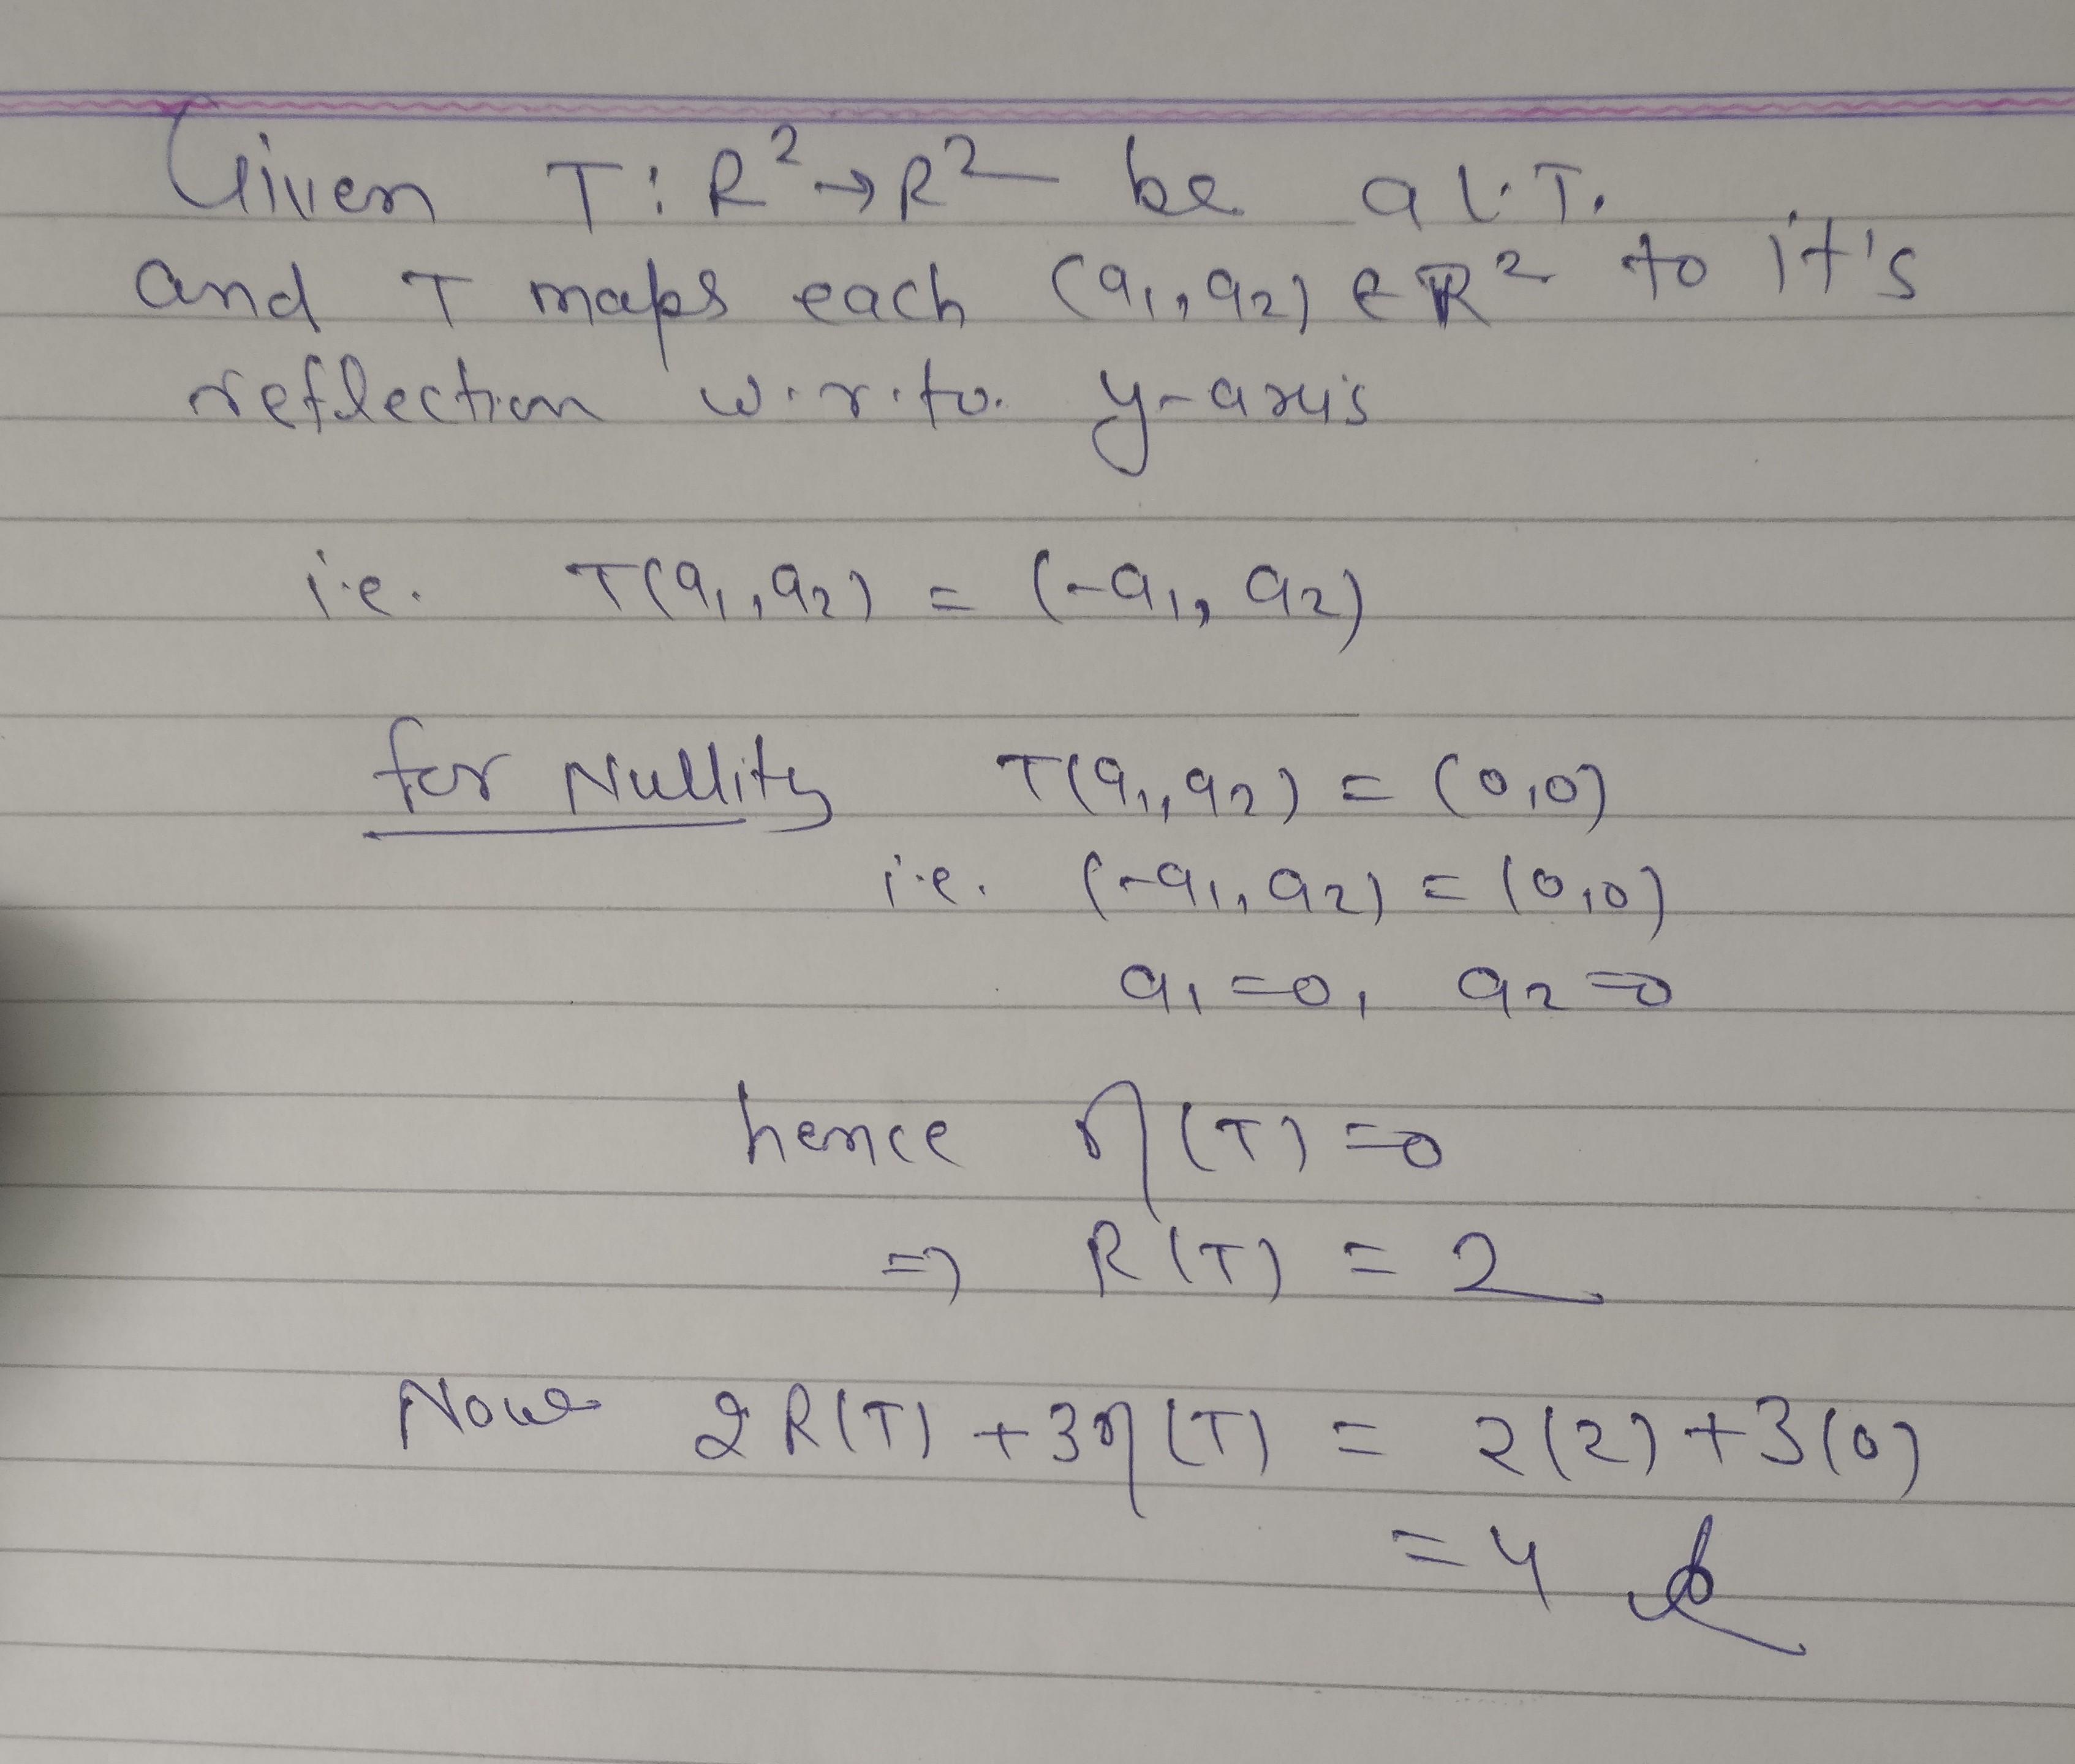 Given T: R² → R² be a L.T.
and T maps each (a₁, a₂) ∈ ℝ² to it's
reflection w.r.to. y-axis
i.e. T(a₁, a₂) = (-a₁, a₂)
for Nullity T(a₁, a₂) = (0,0)
i.e. (-a₁, a₂) = (0,0)
a₁ = 0, a₂ = 0
hence η(T) = 0
⇒ R(T) = 2
Now 2R(T) + 3η(T) = 2(2) + 3(0)
= 4